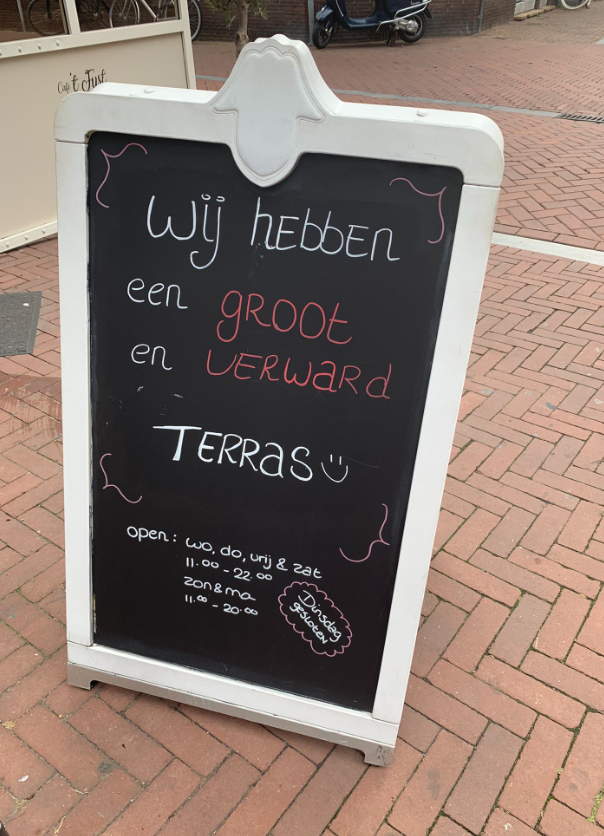 Café 't Fust
Wij hebben
een groot
en verward
Terras
open: wo, do, vrij & zat
11.00 - 22.00
zon & ma
11.00 - 20.00
Dinsdag
gesloten